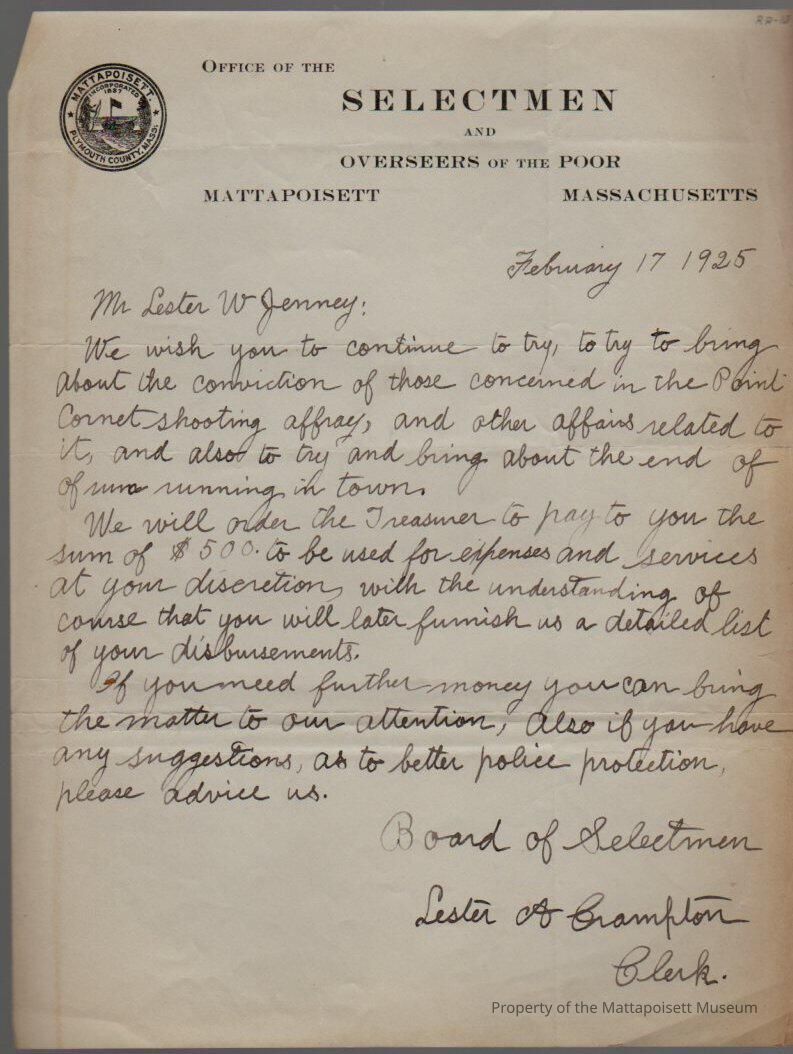 22-12
MATTAPOISETT.
INCORPORATED
1857
PLYMOUTH COUNTY, MASS.
OFFICE OF THE
SELECTMEN
AND
OVERSEERS OF THE POOR
MATTAPOISETT MASSACHUSETTS
February 17 1925
Mr Lester W Jenney:
We wish you to continue to try, to try to bring
about the conviction of those concerned in the Point
Cornet shooting affray, and other affairs related to
it, and also to try and bring about the end of
of rum running in town.
We will order the Treasurer to pay to you the
sum of $500. to be used for expenses and services
at your discretion, with the understanding of
course that you will later furnish us a detailed list
of your disbursements.
If you need further money you can bring
the matter to our attention, Also if you have
any suggestions, as to better police protection,
please advice us.
Board of Selectmen
Lester A Crampton
Clerk.
Property of the Mattapoisett Museum